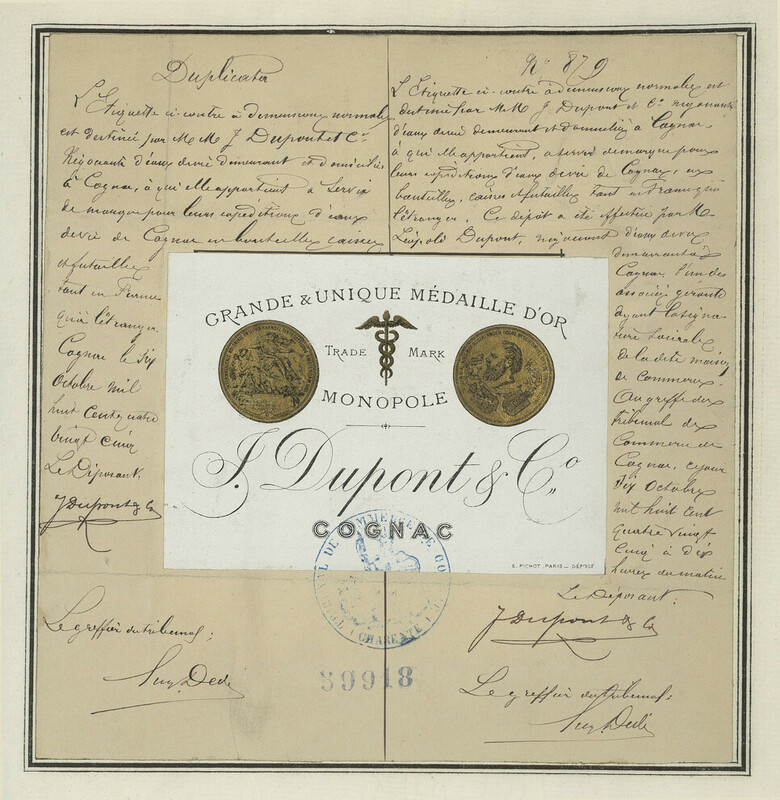 Duplicata
L'Etiquette ci-contre à dimensions normales
est destinée par M M J Dupont et Cie
Négociants d'eaux devie demeurant et domiciliés
à Cognac, à qui elle appartient à servir
de marque pour leurs expéditions d'eaux
devie de Cognac en bouteilles caisses
et futailles
tant en France
qu'à l'étranger.
Cognac le Six
Octobre mil
huit Cent quatre
vingt cinq
Le Déposant,
J Dupont & Co
Le greffier du tribunal;
No 879
L'Etiquette ci-contre à dimensions normales est
destinée par M M J Dupont et Cie négociants
d'eaux devie demeurant et domiciliés à Cognac
à qui elle appartient, à servir de marque pour
leurs expéditions d'eaux devie de Cognac, en
bouteilles, caisses et futailles tant en France qu'à
l'étranger. Ce dépôt a été effectué par M.
Léopold Dupont, négociant d'eaux devie
demeurant à
Cognac, l'un des
associés gérants
ayant la signa-
ture sociale
de la dite maison
de Commerce.
Au greffe du
tribunal de
Commerce de
Cognac, ce jour
Six Octobre
mil huit Cent
quatre vingt
Cinq à dix
heures du matin
Le Déposant:
J Dupont & Co
Le greffier du tribunal:
GRANDE & UNIQUE MÉDAILLE D'OR
TRADE MARK
MONOPOLE
J. Dupont & Co
COGNAC
E. PICHOT, PARIS — DÉPOSÉ
TRIBUNAL DE COMMERCE DE CO
(CHARENTE)
59918